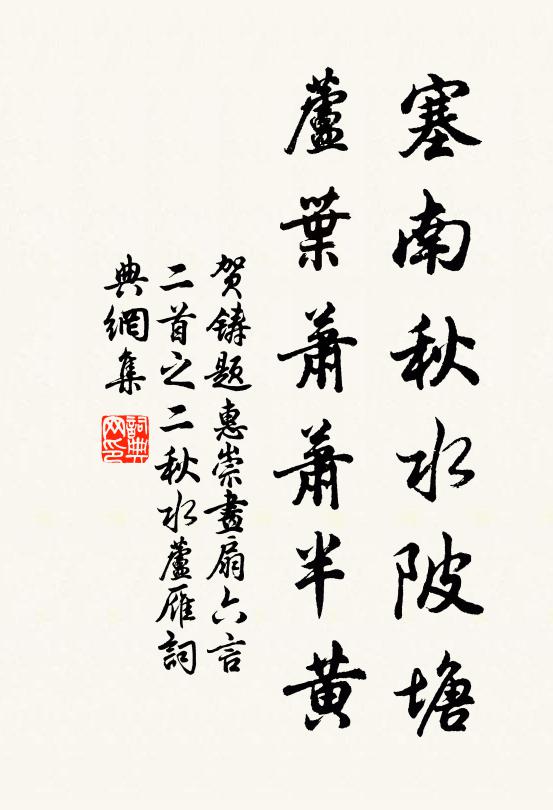 塞南秋水陂塘
蘆葉蕭蕭半黃
贺鑄题惠崇畫扇六言
二首之二秋水蘆雁詞
典網集
詞典
网印